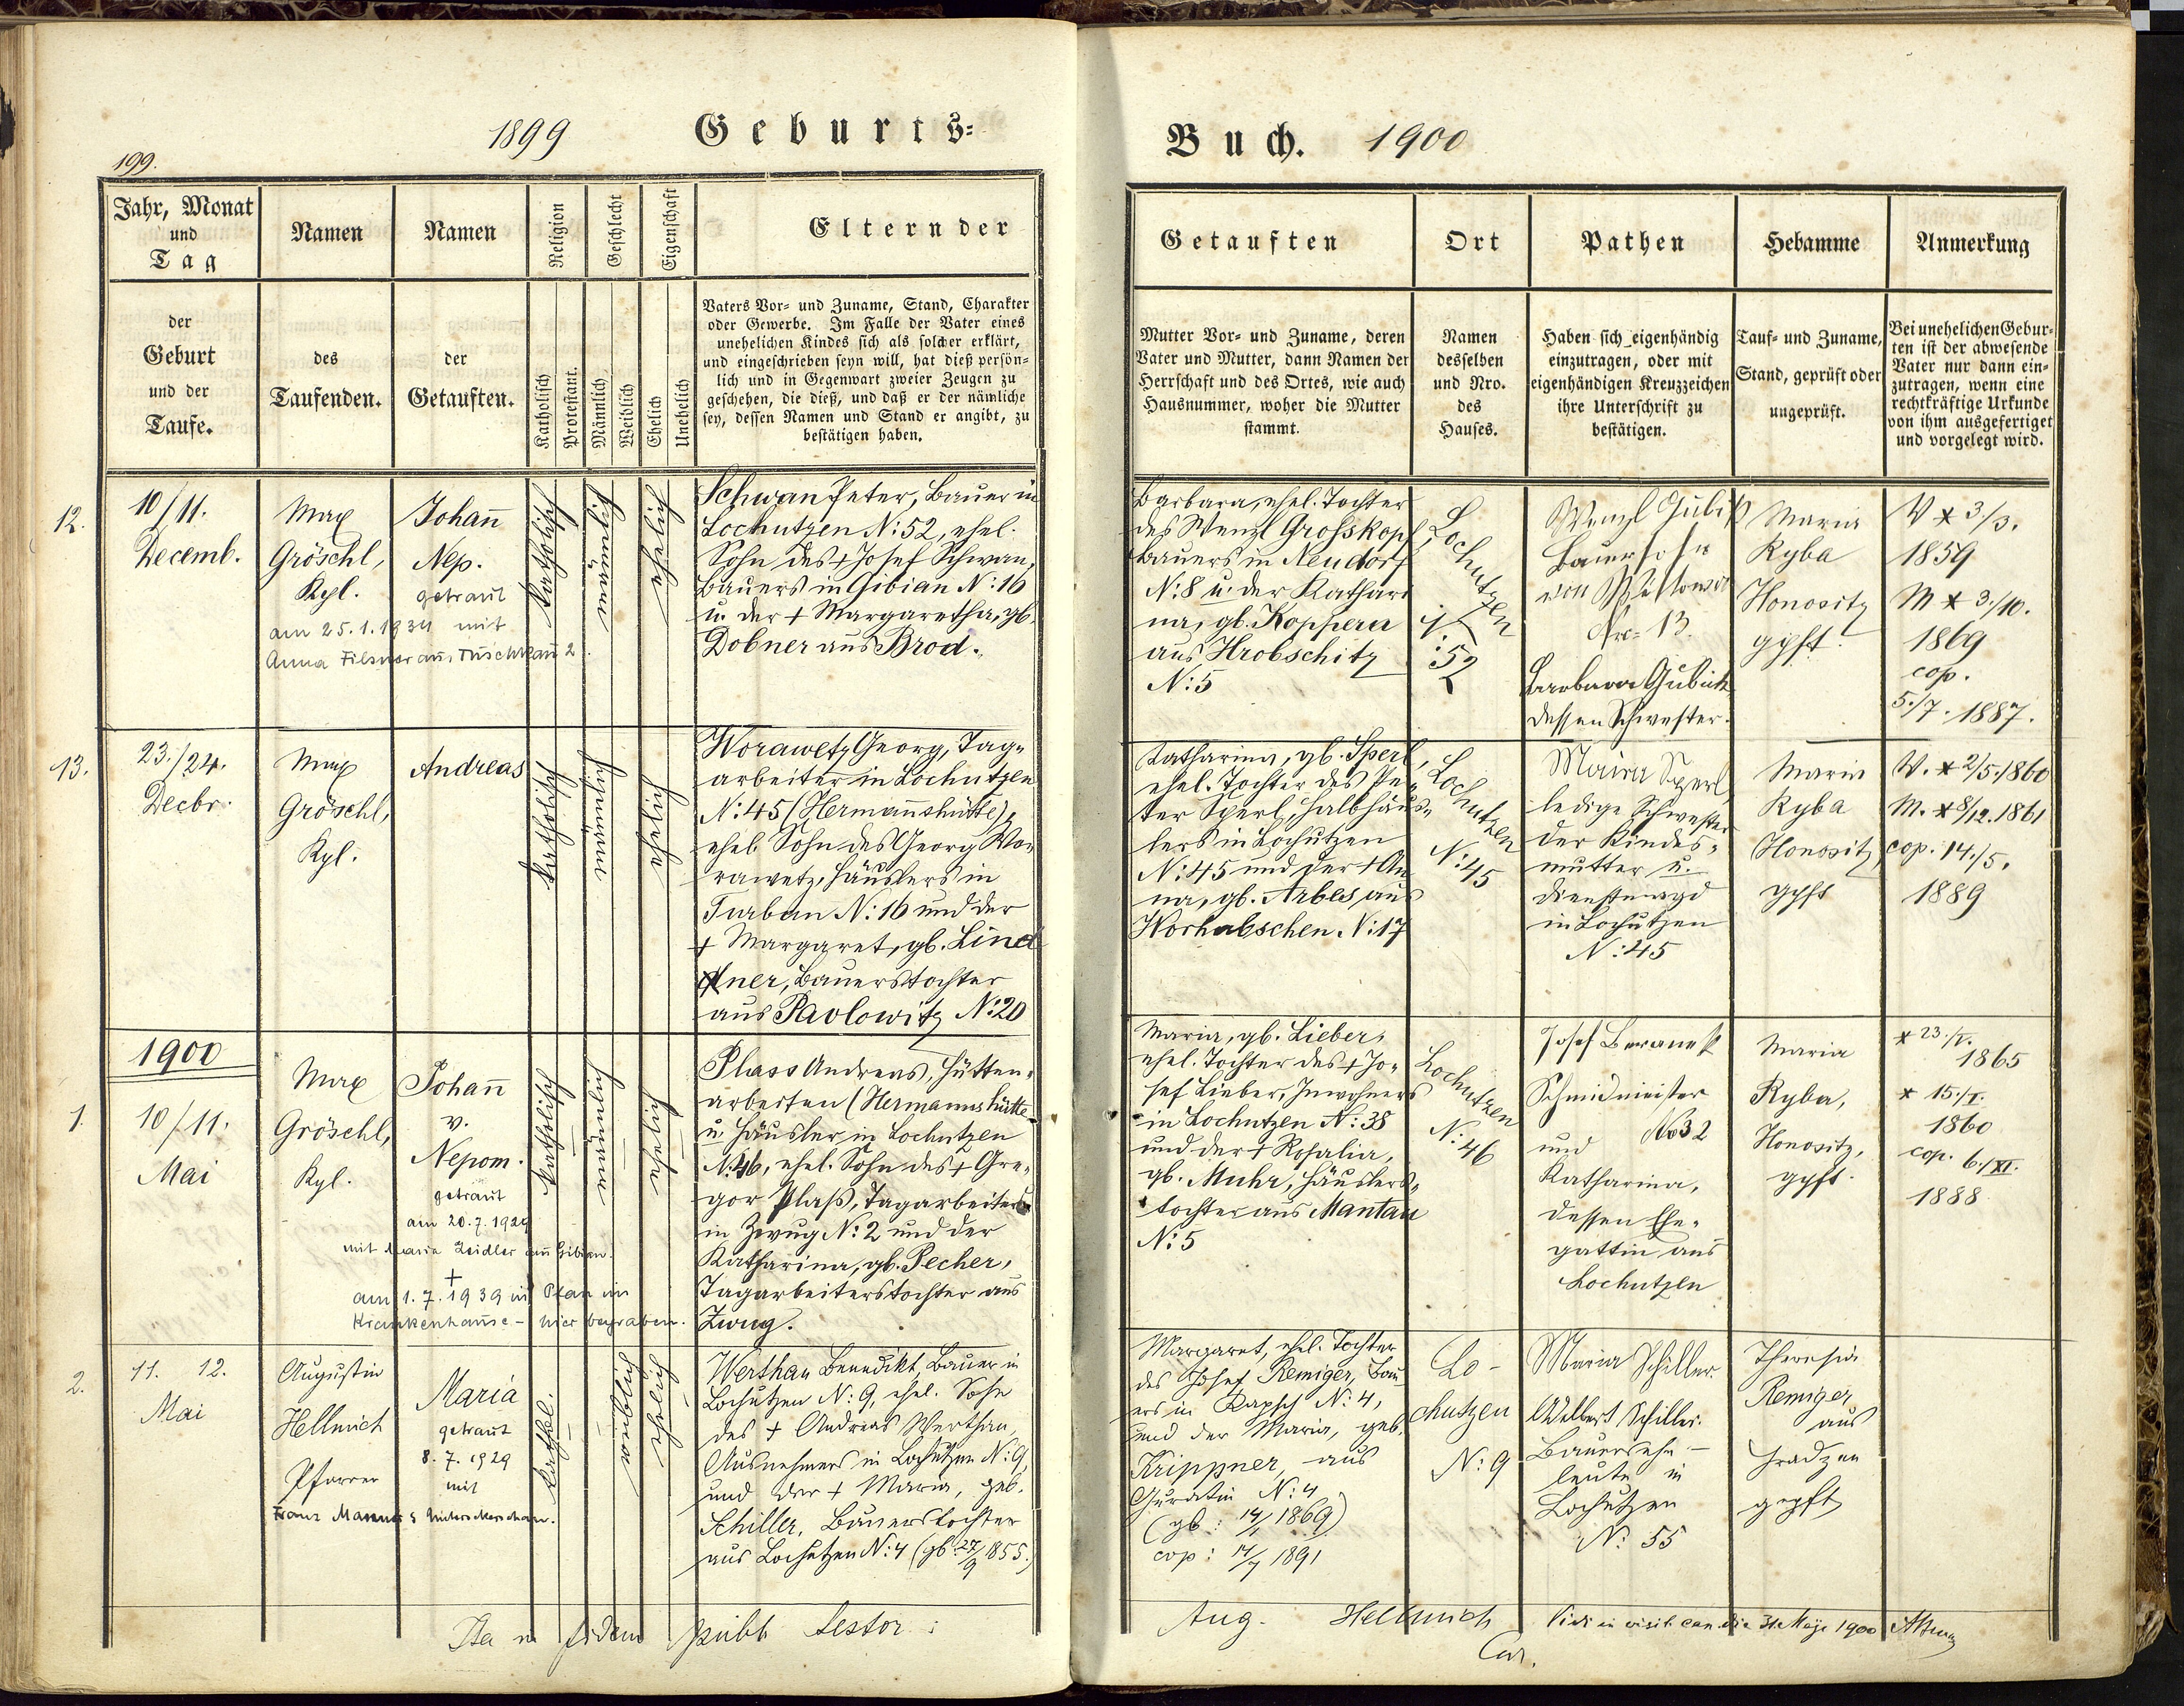 199.
1899
Geburts-
Buch. 1900
Jahr, Monat
und
Tag
der
Geburt
und der
Taufe.
Namen
des
Taufenden.
Namen
der
Getauften.
Religion
Katholisch
Protestant.
Geschlecht
Männlich
Weiblich
Eigenschaft
Ehelich
Unehelich
Eltern der
Vaters Vor- und Zuname, Stand, Charakter
oder Gewerbe. Im Falle der Vater eines
unehelichen Kindes sich als solcher erklärt,
und eingeschrieben seyn will, hat dieß persön-
lich und in Gegenwart zweier Zeugen zu
geschehen, die dieß, und daß er der nämliche
sey, dessen Namen und Stand er angibt, zu
bestätigen haben.
Getauften
Mutter Vor- und Zuname, deren
Vater und Mutter, dann Namen der
Herrschaft und des Ortes, wie auch
Hausnummer, woher die Mutter
stammt.
Ort
Namen
desselben
und Nro.
des
Hauses.
Pathen
Haben sich eigenhändig
einzutragen, oder mit
eigenhändigen Kreuzzeichen
ihre Unterschrift zu
bestätigen.
Hebamme
Tauf- und Zuname,
Stand, geprüft oder
ungeprüft.
Anmerkung
Bei unehelichen Gebur-
ten ist der abwesende
Vater nur dann ein-
zutragen, wenn eine
rechtkräftige Urkunde
von ihm ausgefertiget
und vorgelegt wird.
12.
10/11.
Decemb.
Max
Gröschl,
Kpl.
Johañ
Nep.
getraut
am 25.1.1934 mit
Anna Filsner aus Tuschkau 2.
katholisch
männl.
ehelich
Schwan Peter, Bauer in
Lochutzen N: 52, ehel.
Sohn des + Josef Schwan,
Bauers in Gibian N: 16
u. der + Margaretha, gb.
Dobner aus Brod.
Barbara, ehel. Tochter
des Wenzl Grosskopf,
Bauers in Neudorf
N: 8 u. der Kathari
na, gb. Kopperer
aus Hrobschitz
N: 5
Lochutzen
N: 52
Wenzl
Bauerssohn
von
Nro 13.
Barbara
dessen Schwester.
Maria
Ryba
Honositz
gpft.
V * 3/3.
1859
M * 3./10.
1869
cop.
5./7. 1887.
13.
23./24.
Decbr.
Max
Gröschl,
Kpl.
Andreas
katholisch
männl.
ehelich
Worawetz Georg, Tag-
arbeiter in Lochutzen
N: 45 (Hermañshütte),
ehel. Sohn des Georg Wo-
rawetz, Häuslers in
Turban N: 16 und der
+ Margaret, gb. Lind
ner, Bauerstochter
aus Pavlowitz N: 20
Katharina, gb. Sperl,
ehel. Tochter des Pe-
ter Sperl, Halbhäus-
lers in Lochutzen
N: 45 und der + An
na, gb. Arbes aus
Worhabschen N: 17
Lochutzen
N: 45
Maria Sperl
ledige Schwester
der Kindes-
mutter u.
Dienstmagd
in Lochutzen
N: 45
Maria
Ryba
Honositz,
gpft
V. * 2/5. 1860
M. * 8/12. 1861
cop. 14./5.
1889
1900
1.
10/11.
Mai
Max
Gröschl,
Kpl.
Johañ
v.
Nepom.
getraut
am 20.7.1929
mit Maria Zeidler aus Gibian.
+
am 1.7.1939 in Plan im
Krankenhause - hier begraben.
katholisch
männl.
ehelich
Plass Andreas, Hütten-
arbeiter (Hermannshütte
u. Häusler in Lochutzen
N: 46, ehel. Sohn des + Gre-
gor Plass, Tagarbeiters
in Zwug N: 2 und der
Katharina, gb. Pecher,
Tagarbeiterstochter aus
Zwug.
Maria, gb. Lieber,
ehel. Tochter des + Jo-
sef Lieber, Inwohners
in Lochutzen N: 38
und der + Rosalia,
gb. Muhr, Häuslers-
tochter aus Mantau
N: 5
Lochutzen
N: 46
Josef Beranek
Schmidmeister
und No 32
Katharina,
dessen Ehe-
gattin aus
Lochutzen
Maria
Ryba,
Honositz,
gpft.
* 23./V.
1865
* 15./I.
1860
cop. 6./XI.
1888
2.
11. 12.
Mai
Augustin
Hellmich
Pfarrer
Maria
getraut
8.7.1929
mit
Franz
kathol.
weibl.
ehelich
Werthan Benedikt, Bauer in
Lochutzen N: 9, ehel. Sohn
des + Andreas Werthan,
Ausnehmers in Lochutzen N: 9,
und der + Maria, geb.
Schiller, Bauerstochter
aus Lochutzen N: 4 (gb: 27/9 1855.)
Margaret, ehel. Tochter
des Josef Remiger, Bau
ers in Rapsch N: 4,
und der Maria, geb.
Krippner, aus
Guratin N: 4
(gb: 14/1 1869)
cop: 14/7 1891
Lo-
chutzen
N: 9
Maria Schiller.
Adalbert Schiller.
Bauersehe-
leute in
Lochutzen
N: 55
Theresia
Remiger
aus
Hradzen
gepft
Ita in fidem publ. testor:
Aug. Hellmich
Cur.
Vidi in visit. can. die 31. Maji 1900